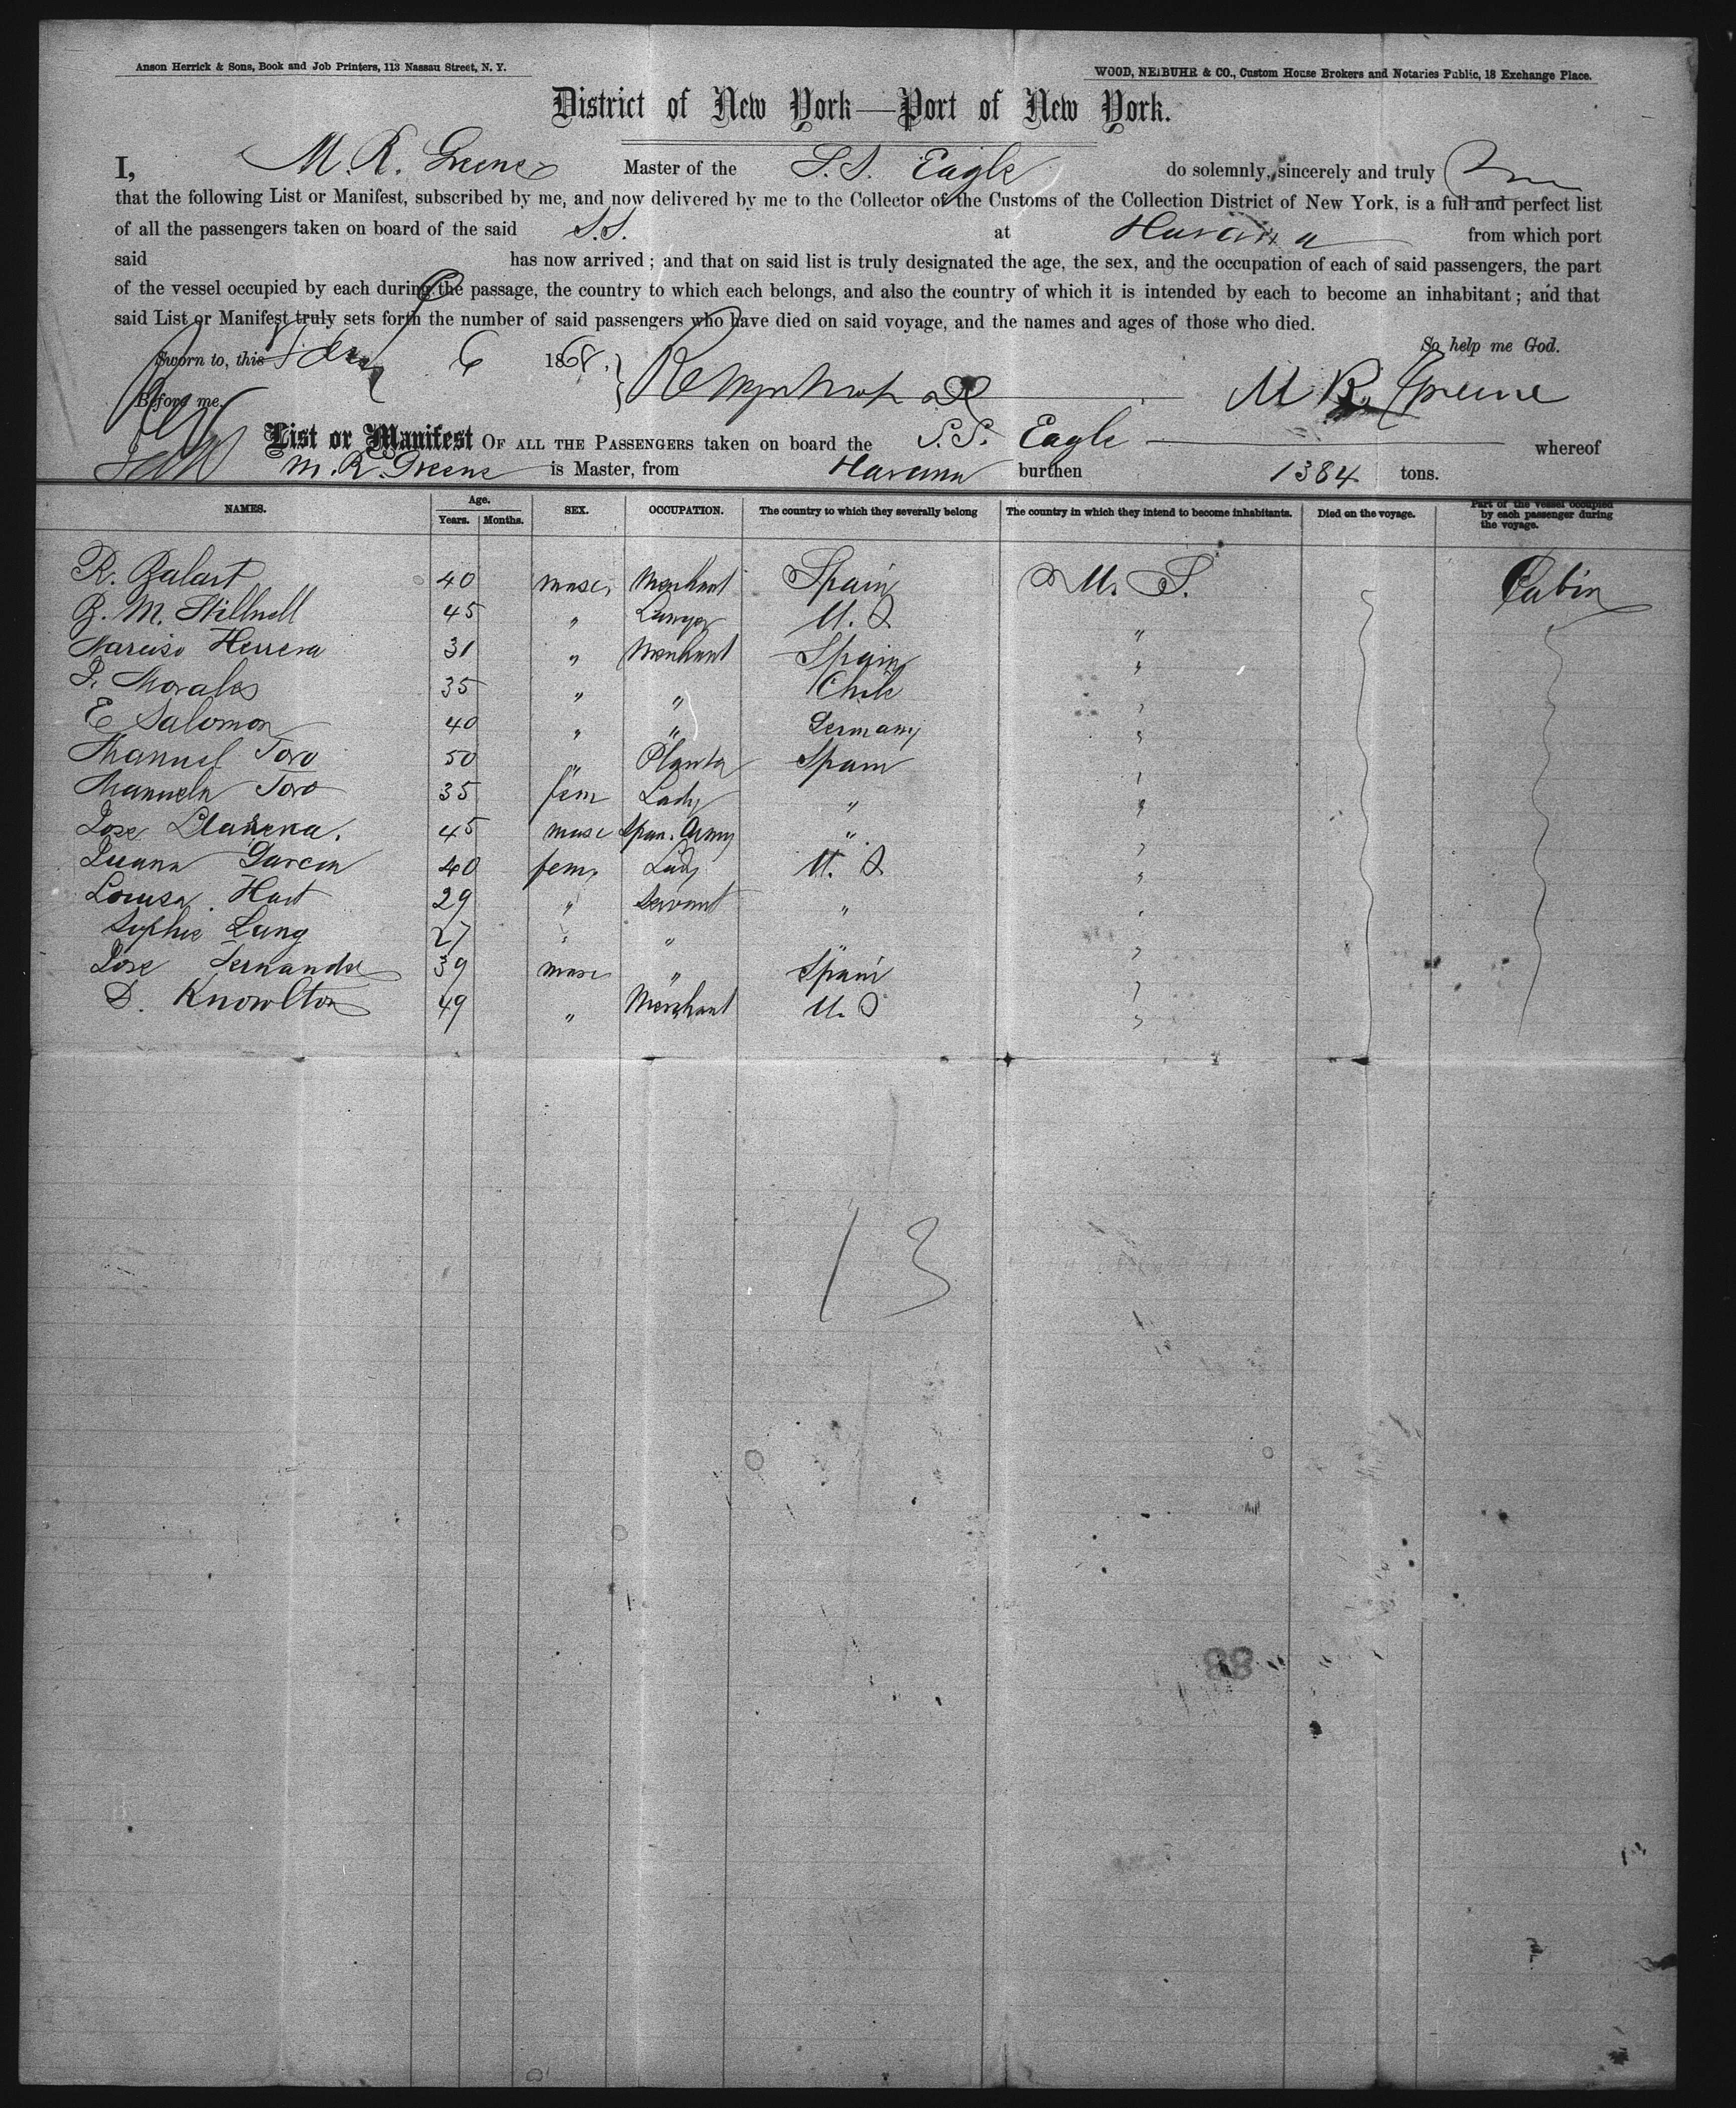 Anson Herrick & Sons, Book and Job Printers, 113 Nassau Street, N. Y.
WOOD, NEIBUHR & CO., Custom House Brokers and Notaries Public, 18 Exchange Place.
District of New York—Port of New York.
I, M. R. Greene Master of the S.S. Eagle do solemnly, sincerely and truly
that the following List or Manifest, subscribed by me, and now delivered by me to the Collector of the Customs of the Collection District of New York, is a full and perfect list
of all the passengers taken on board of the said S.S. at Havana from which port
said has now arrived ; and that on said list is truly designated the age, the sex, and the occupation of each of said passengers, the part
of the vessel occupied by each during the passage, the country to which each belongs, and also the country of which it is intended by each to become an inhabitant ; and that
said List or Manifest truly sets forth the number of said passengers who have died on said voyage, and the names and ages of those who died.
So help me God.
Sworn to, this 6 1868.
Before me, M R. Greene
List or Manifest OF ALL THE PASSENGERS taken on board the S.S. Eagle whereof
M. R. Greene is Master, from Havana burthen 1384 tons.
NAMES. Age. Years. Months. SEX. OCCUPATION. The country to which they severally belong The country in which they intend to become inhabitants. Died on the voyage. Part of the vessel occupied by each passenger during the voyage.
R. Balart 40 masc Merchant Spain U. S. Cabin
45 " Lawyer U. S "
Narciso Herrera 31 " Merchant Spain "
Morales 35 " " Chile "
E Salomon 40 " " Germany "
Manuel Toro 50 " Planter Spain "
Manuela Toro 35 fem Lady " "
Jose 45 masc Span. Army " "
Juana Garcia 40 fem Lady U. S "
Louisa Hart 29 " Servant " "
Sophie Lang 27 " " "
Jose Fernandez 39 masc " Spain "
D. Knowlton 49 " Merchant U. S "
13
88